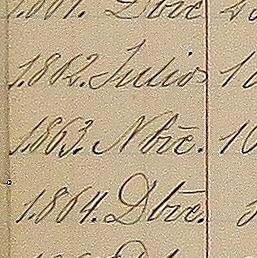 1.861. Dbre
1.862. Julios 10
1.863. Nbre. 10
1.864. Dbre.